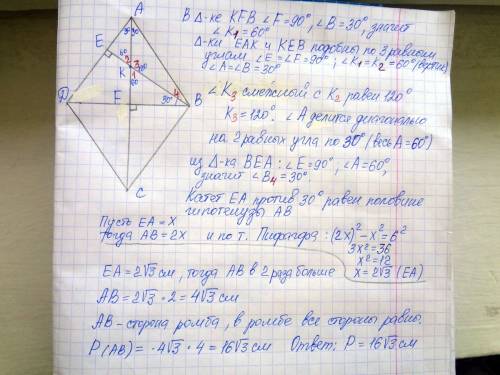 A
30°30°
E
60
2 3
K 120°
1
60
F
30° 4
D
B
C
В Δ-ке KFB ∠F=90°, ∠B=30°, значит
∠K₁=60°
Δ-ки EAK и KEB подобны по 3 равным
углам ∠E=∠F=90°; ∠K₁=K₂=60° (вертик)
∠A=∠B=30°
∠K₃ смежный с K₂ равен 120°
K₃=120°. ∠A делится диагональю
на 2 равных угла по 30° (весь A=60°)
из Δ-ка BEA: ∠E=90°, ∠A=60°,
значит ∠B₄=30°
Катет EA против 30° равен половине
гипотенузы AB
Пусть EA=x
тогда AB=2x и по т. Пифагора: (2x)²-x²=6²
3x²=36
x²=12
x=2√3 (EA)
EA=2√3 см, тогда AB в 2 раза больше
AB=2√3·2=4√3 см
AB-сторона ромба, в ромбе все стороны равны.
P(AB)=·4√3·4=16√3 см Ответ: P=16√3 см